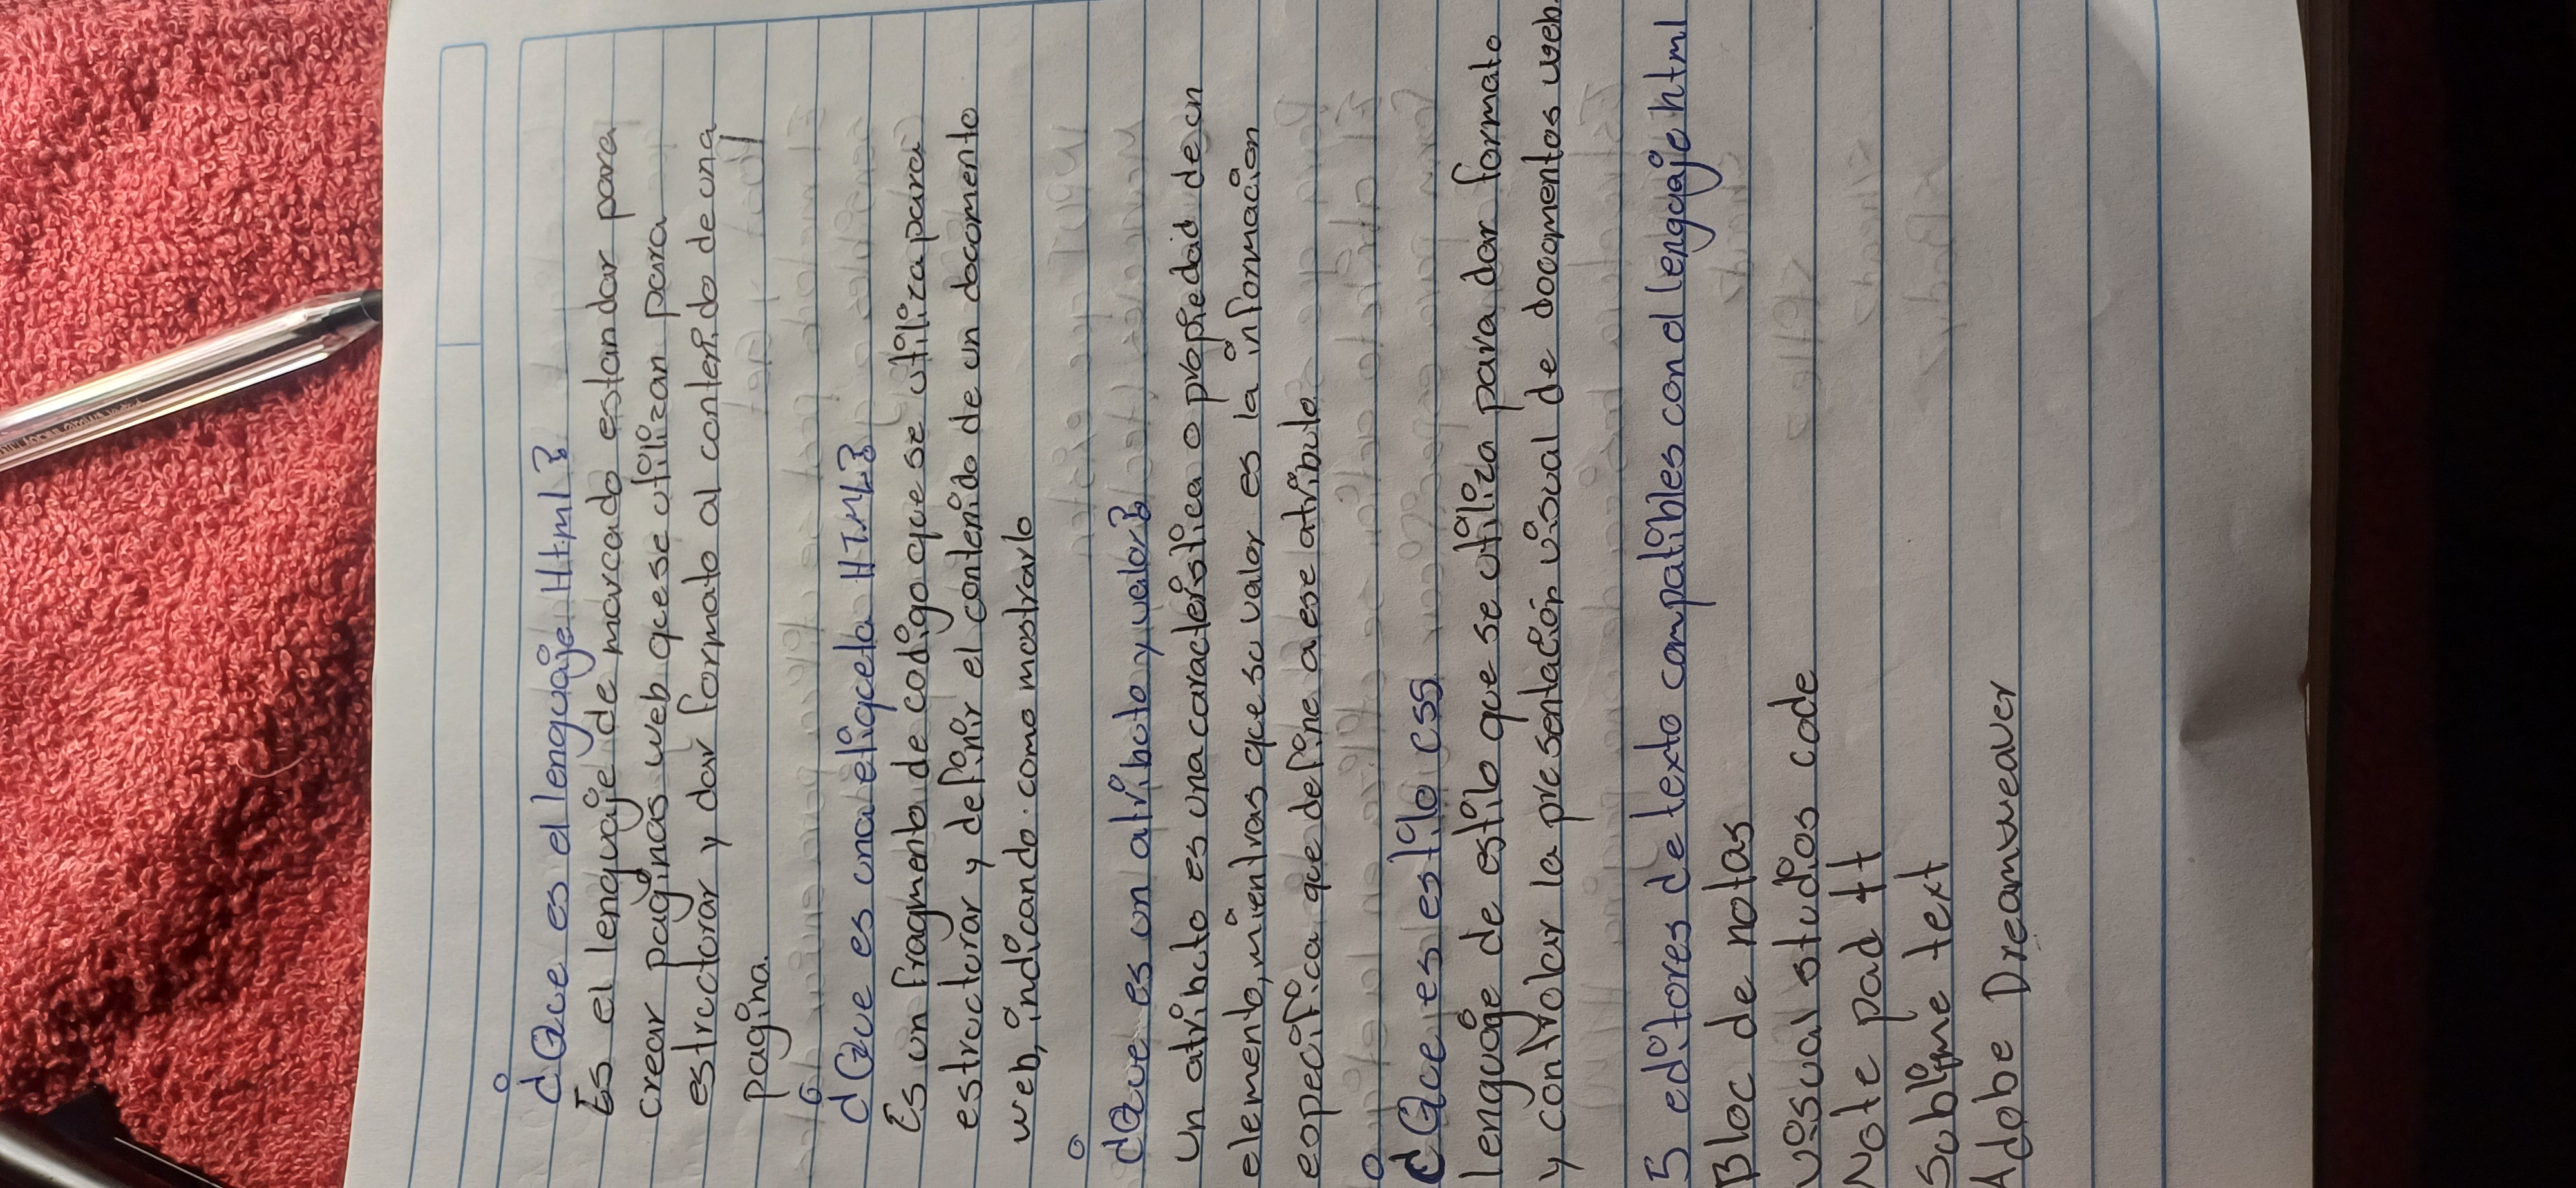 ¿Que es el lenguaje Html?
Es el lenguaje de marcado estandar para
crear paginas web que se utilizan para
estructurar y dar formato al contenido de una
pagina.
¿Que es una etiqueta HTML?
Es un fragmento de codigo que se utiliza para
estructurar y definir el contenido de un documento
web, indicando como mostrarlo
¿Que es un atributo y valor?
Un atributo es una caracteristica o propiedad de un
elemento, mientras que su valor es la informacion
especifica que define a ese atributo.
¿Que es estilo css
lenguaje de estilo que se utiliza para dar formato
y controlar la presentación visual de documentos web.
5 editores de texto compatibles con el lengaje html
Bloc de notas
visual studios code
Note pad ++
Sublime text
Adobe Dreamweaver